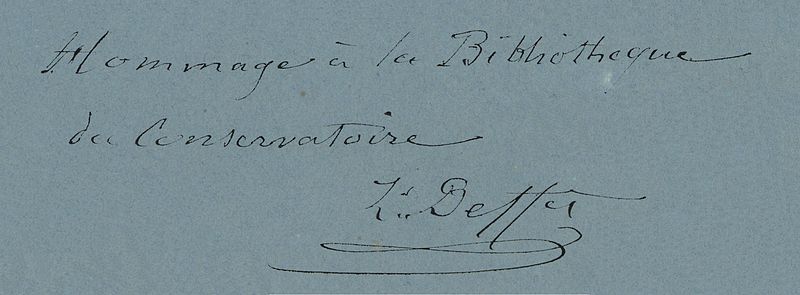 Hommage à la Bibliotheque
du Conservatoire
Ls. Deffès